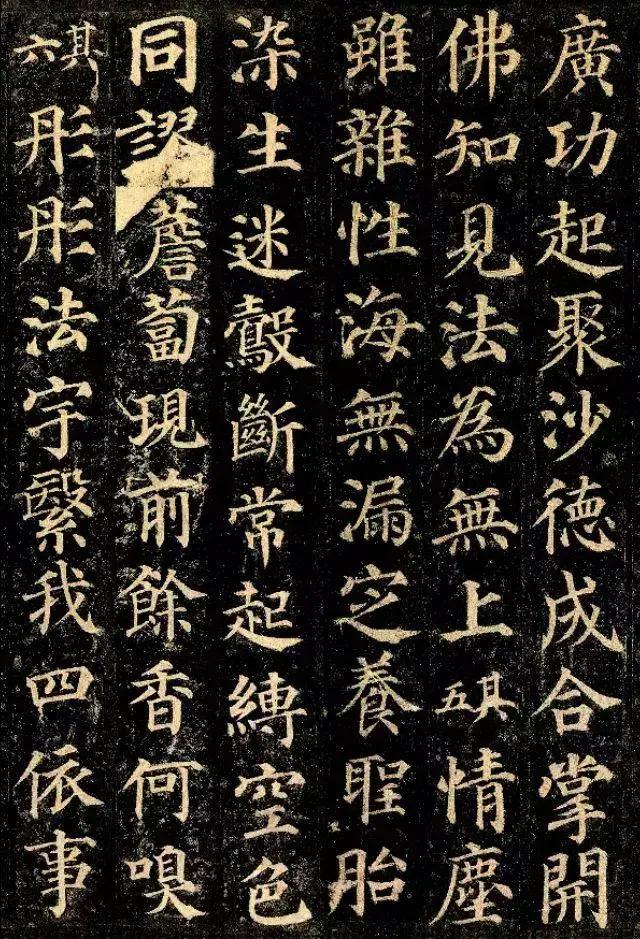 廣功起聚沙德成合掌開
佛知見法為無上其五情塵
雖雜性海無漏㝎養聖胎
染生迷鷇斷常起縛空色
同謬薝蔔現前餘香何嗅
其六彤彤法宇繄我四依事